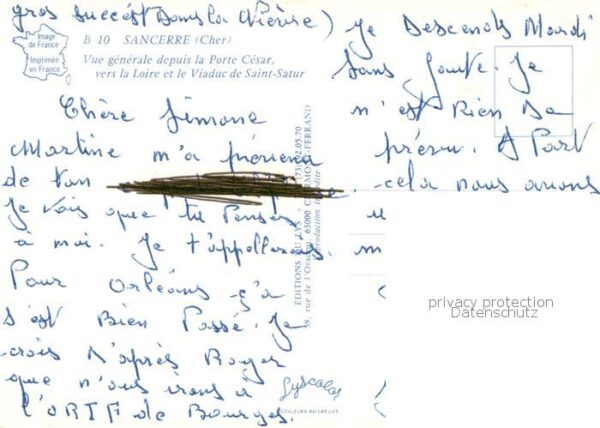 gros succès dans la Nièvre)
Image
de France
Imprimée
en France
B 10 SANCERRE (Cher)
Vue générale depuis la Porte César,
vers la Loire et le Viaduc de Saint-Satur
Chère Simone
Martine m'a prévenu
de ton
Je vois que tu Penses
à moi. Je t'appellerais.
Pour Orléans ç'a
s'est Bien Passé. Je
crois d'après Roger
que n'ous irons à
l'ORTF de Bourges.
Je Descends Mardi
Sans faute. Je
n'est Rien de
prévu. A Part
cela nous avons
ÉDITIONS DU LYS
CLERMONT-FERRAND
Lyscolor
COULEURS NATURELLES
privacy protection
Datenschutz